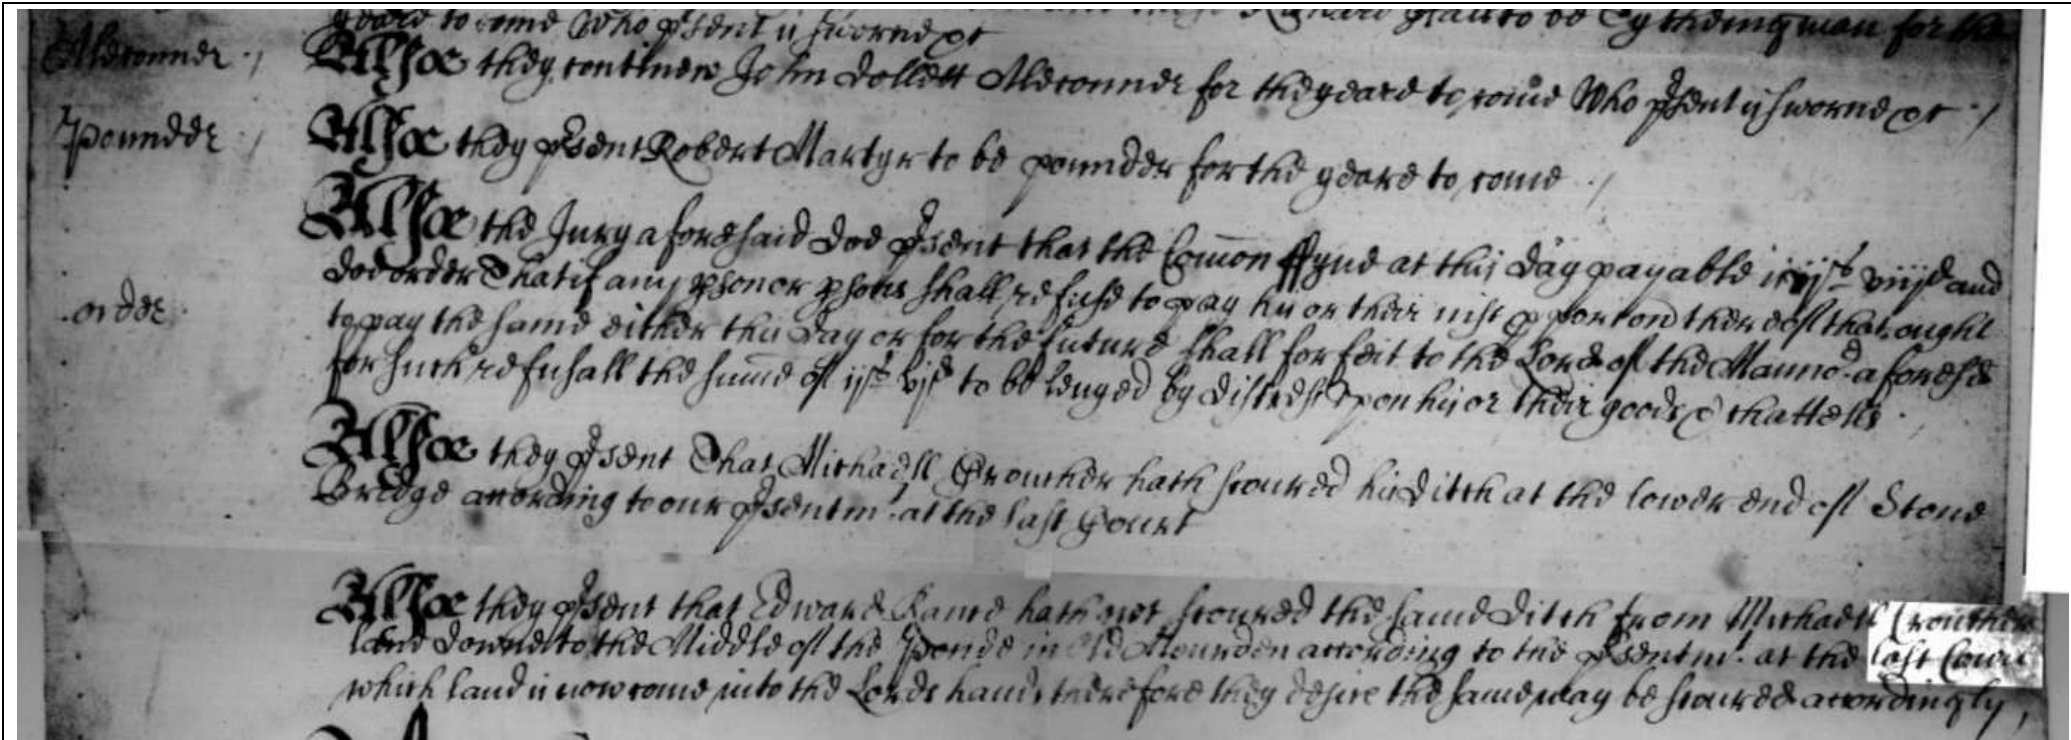 yeare to come Who psent is sworne &c
Aleconner
Alsoe they continew John Dollett Aleconner for the yeare to come Who psent is sworne &c
Pounder
Alsoe they psent Robert Martyr to be pounder for the yeare to come
Alsoe the Jury aforesaid doe psent that the Comon ffyne at this day payable is viijd and
order
doe order That if any pson or psons shall refuse to pay his or their iust pporcon thereof that ought
to pay the same either this day or for the future shall forfeit to the Lord of the Manno aforesd
for such refusall the sume of ijs vjd to be leuyed by distress vpon his or their goods & chattells
Alsoe they psent That Michaell Croucher hath scoured his Ditch at the lower end of Stone
Bridge according to our psentmt at the last Court
Alsoe they psent that Edward hath not scoured the same Ditch from Michaell
land downe to the Middle of the Ponde in Old according to the psentmt at the last Court
which land is now come into the Lords hands therefore they desire the same may be scoured accordingly